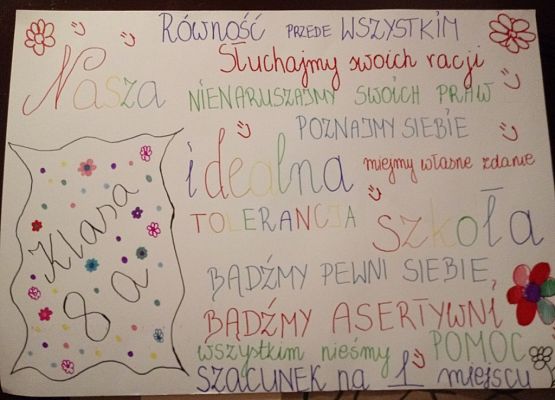 RÓWNOŚĆ PRZEDE WSZYSTKIM
SŁuchajmy swoich racji
Nasza
NIENARUSZAJMY SWOICH PRAW
POZNAJMY SIEBIE
idealna
miejmy własne zdanie
TOLERANCJA
szkoła
Klasa
8a
BĄDŹMY PEWNI SIEBIE,
BĄDŹMY ASERTYWNI,
wszystkim nieśmy POMOC
SZACUNEK na 1 miejscu